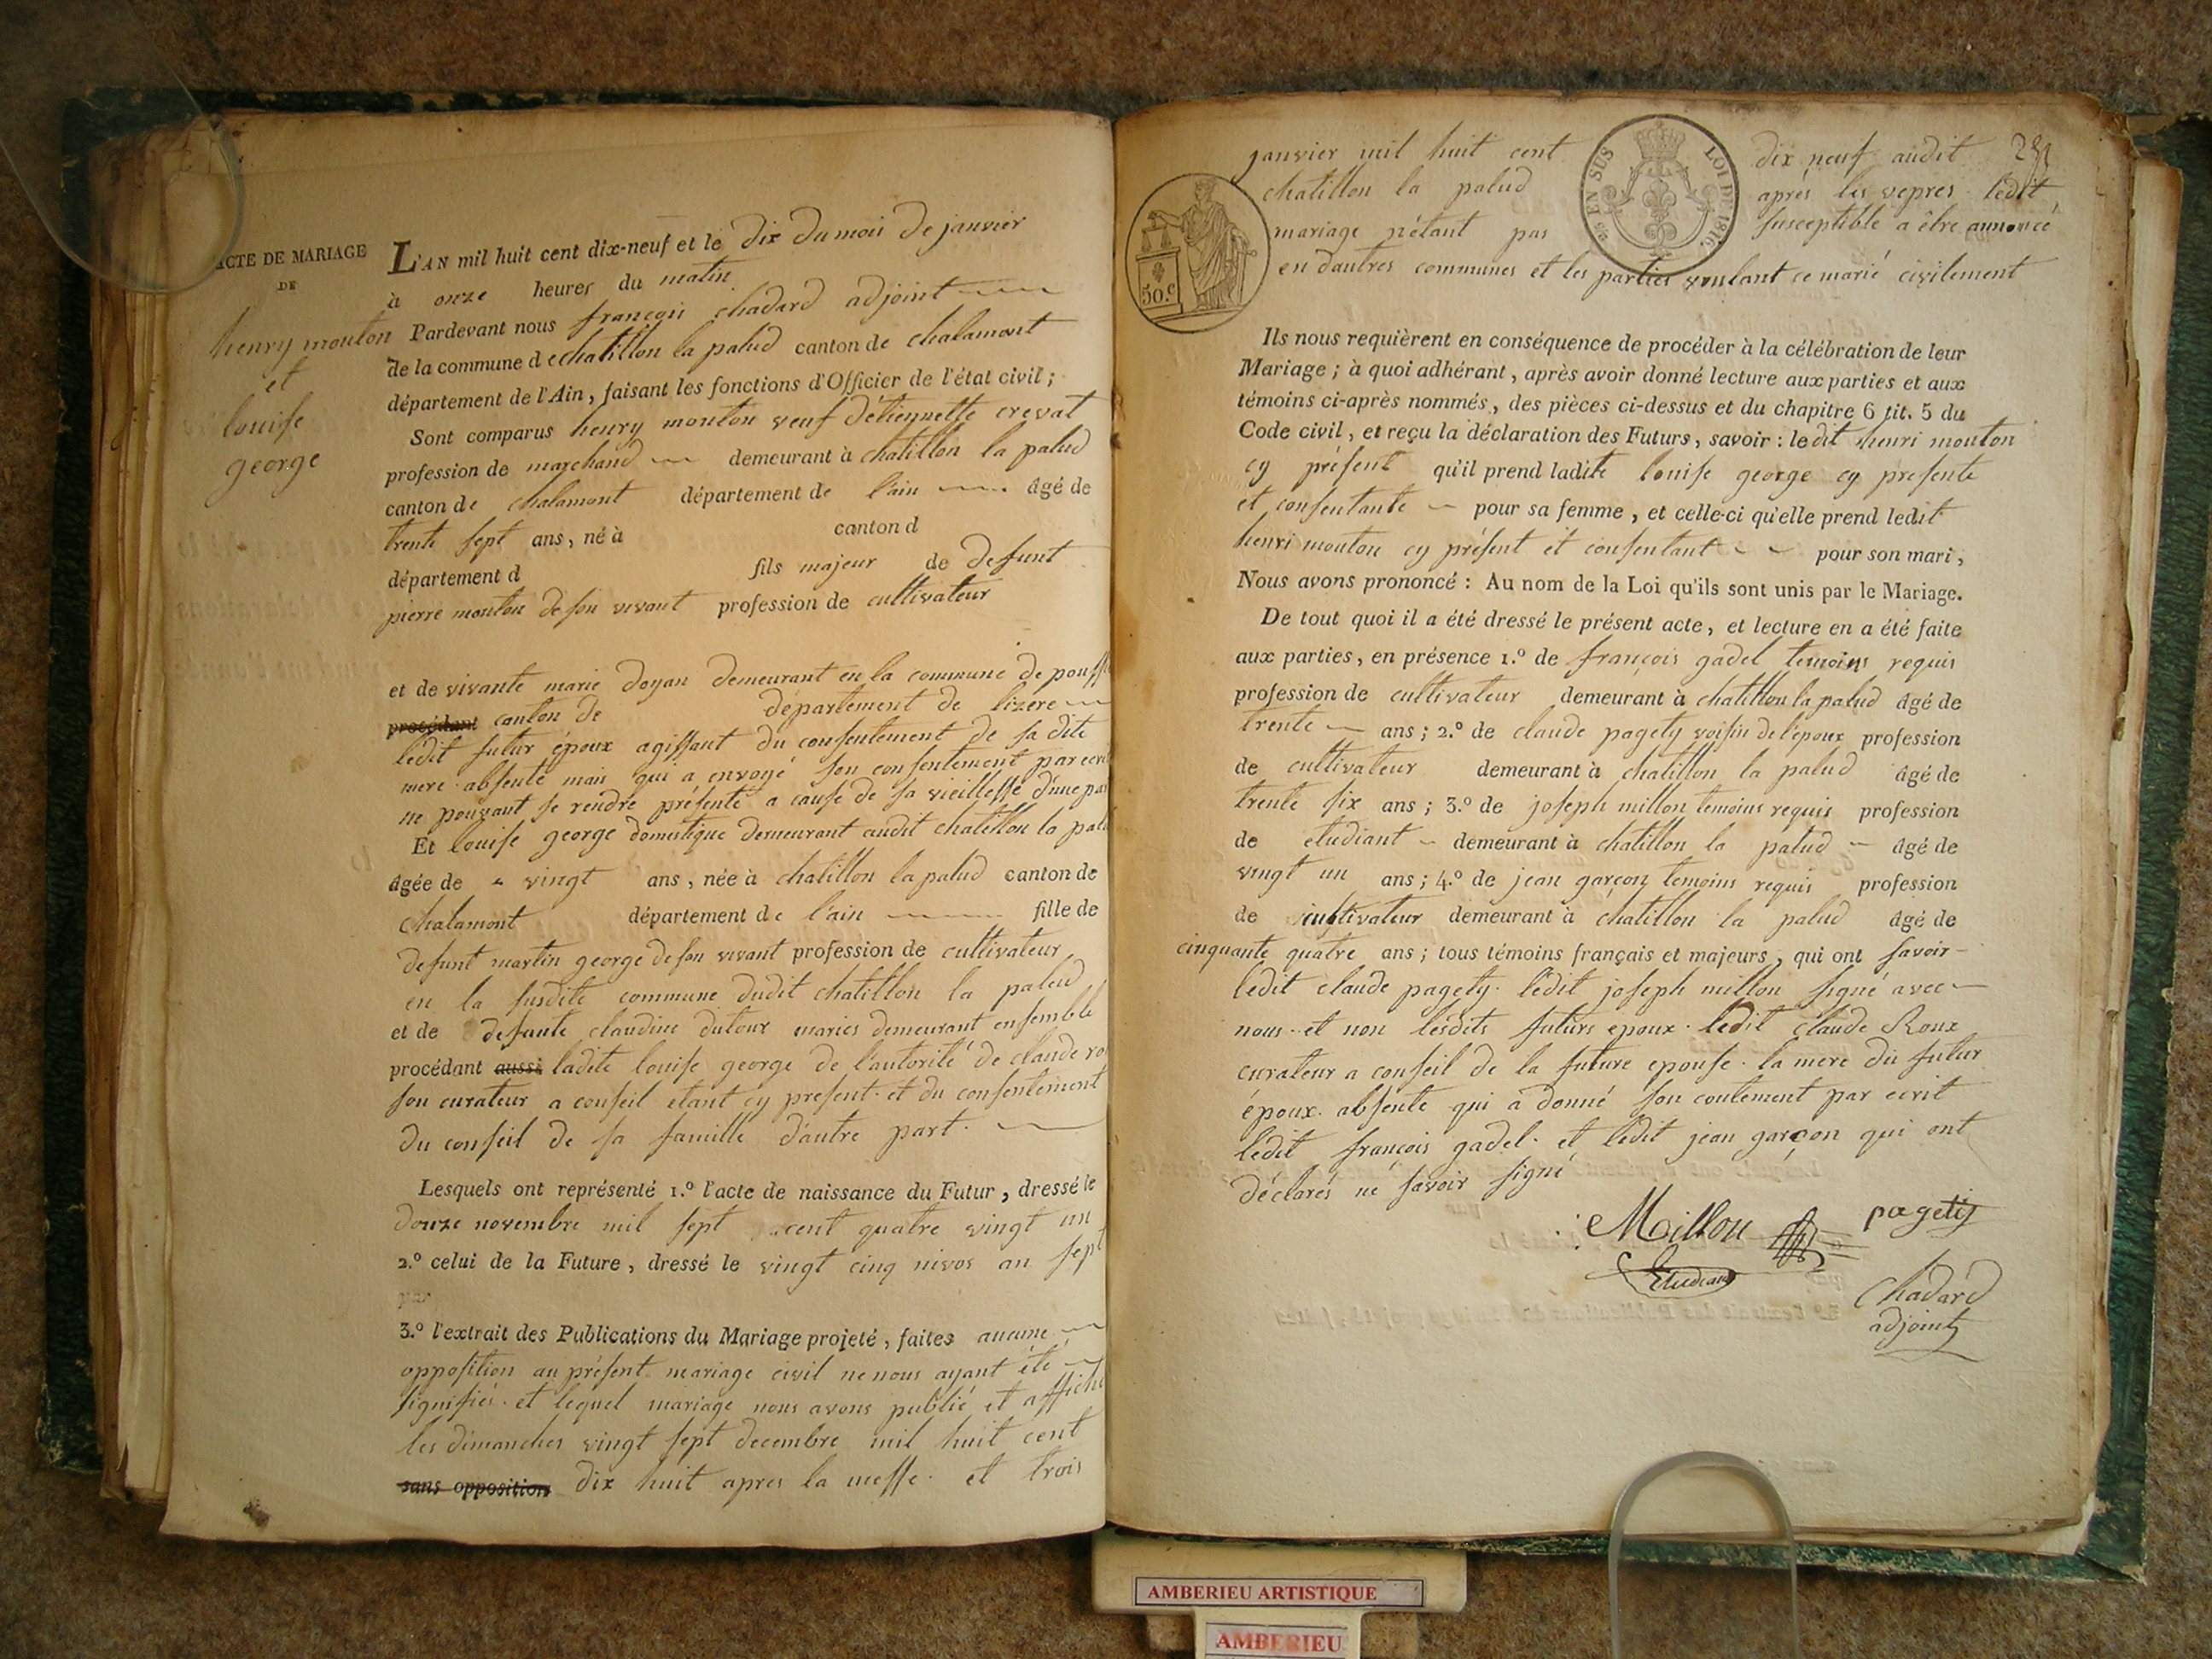 ACTE DE MARIAGE
DE
henry mouton
et
louise
george
L'AN mil huit cent dix-neuf et le dix du mois de janvier
à onze heures du matin
Pardevant nous françois chadard adjoint
de la commune de chatillon la palud canton de chalamont
département de l'Ain, faisant les fonctions d'Officier de l'état civil;
Sont comparus henry mouton veuf d'étiennette crevat
profession de marchand demeurant à chatillon la palud
canton de chalamont département de l'ain âgé de
trente sept ans, né à canton d
département d fils majeur de defunt
pierre mouton de son vivant profession de cultivateur
et de vivante marie doyan demeurant en la commune de
procédant canton de département de lizere
ledit futur époux agissant du consentement de sa dite
mere absente mais qui a envoyé son consentement par ecrit
ne pouvant se rendre présente a cause de sa vieillesse d'une par
Et louise george domestique demeurant audit chatillon la palu
âgée de vingt ans, née à chatillon la palud canton de
chalamont département de l'ain fille de
defunt martin george de son vivant profession de cultivateur
en la susdite commune dudit chatillon la palud
et de defunte claudine dutour maries demeurant ensemble
procédant aussi ladite louise george de l'autorité de claude ro
son curateur a conseil etant cy present et du consentement
du conseil de sa famille d'autre part.
Lesquels ont représenté 1.º l'acte de naissance du Futur, dressé le
douze novembre mil sept cent quatre vingt un
2.º celui de la Future, dressé le vingt cinq nivos an sept
3.º l'extrait des Publications du Mariage projeté, faites aucune
opposition au présent mariage civil ne nous ayant été
signifiés. et lequel mariage nous avons publié et affiché
les dimanches vingt sept decembre mil huit cent
sans opposition dix huit apres la messe. et trois
janvier mil huit cent dix neuf audit
chatillon la palud après les vepres. ledit
mariage n'étant pas susceptible a être annoncé
en d'autres communes et les parties voulant ce marié civilement
EN SUS LOI DE 1816
50.c
Ils nous requièrent en conséquence de procéder à la célébration de leur
Mariage; à quoi adhérant, après avoir donné lecture aux parties et aux
témoins ci-après nommés, des pièces ci-dessus et du chapitre 6 tit. 5 du
Code civil, et reçu la déclaration des Futurs, savoir: ledit henri mouton
cy présent qu'il prend ladite louise george cy presente
et consentante pour sa femme, et celle-ci qu'elle prend ledit
henri mouton cy présent et consentant pour son mari,
Nous avons prononcé: Au nom de la Loi qu'ils sont unis par le Mariage.
De tout quoi il a été dressé le présent acte, et lecture en a été faite
aux parties, en présence 1.º de françois gadel temoins requis
profession de cultivateur demeurant à chatillon la palud âgé de
trente ans; 2.º de claude pagety voisin de l'époux profession
de cultivateur demeurant à chatillon la palud âgé de
trente six ans; 3.º de joseph millon temoins requis profession
de etudiant demeurant à chatillon la palud âgé de
vingt un ans; 4.º de jean garçon temoins requis profession
de cultivateur demeurant à chatillon la palud âgé de
cinquante quatre ans; tous témoins français et majeurs, qui ont savoir
ledit claude pagety. ledit joseph millon signé avec
nous. et non lesdits futurs epoux. ledit claude Roux
curateur a conseil de la future epouse. la mere du futur
époux. absente qui a donné son contement par ecrit
ledit françois gadel. et ledit jean garçon qui ont
déclarés ne savoir signé
Millon pagety
Etudiant
Chadard
adjoint
AMBERIEU ARTISTIQUE
AMBERIEU